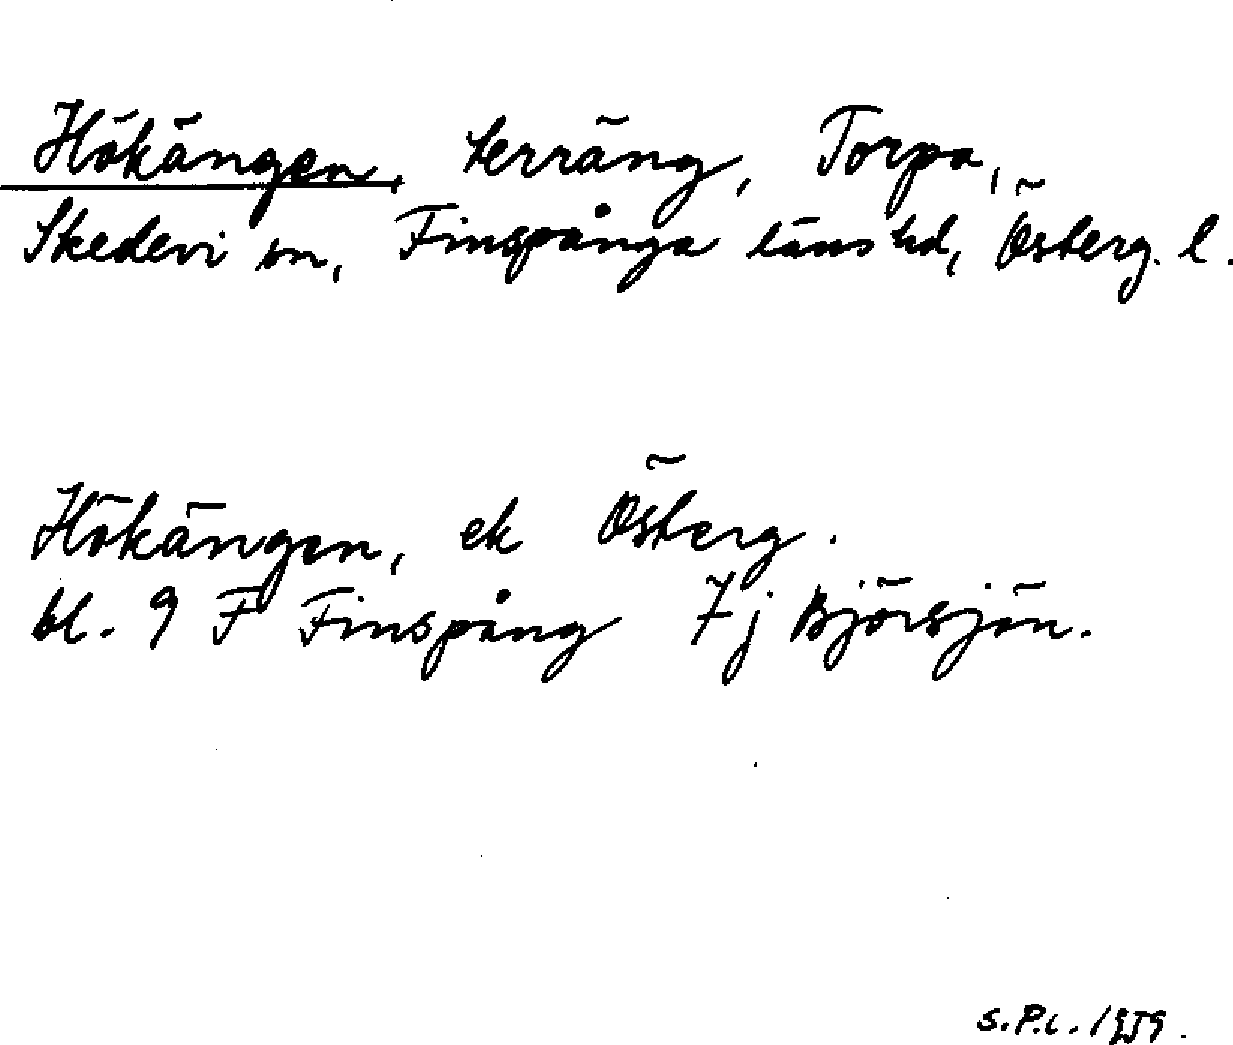 Hökängen, terräng, Torpa,
Skedevi sn, Finspånga läns hd, Österg. l.
Hökängen, ek Österg.
bl. 9 F Finspång 7j Björsjön.
s.P.c. 1959.